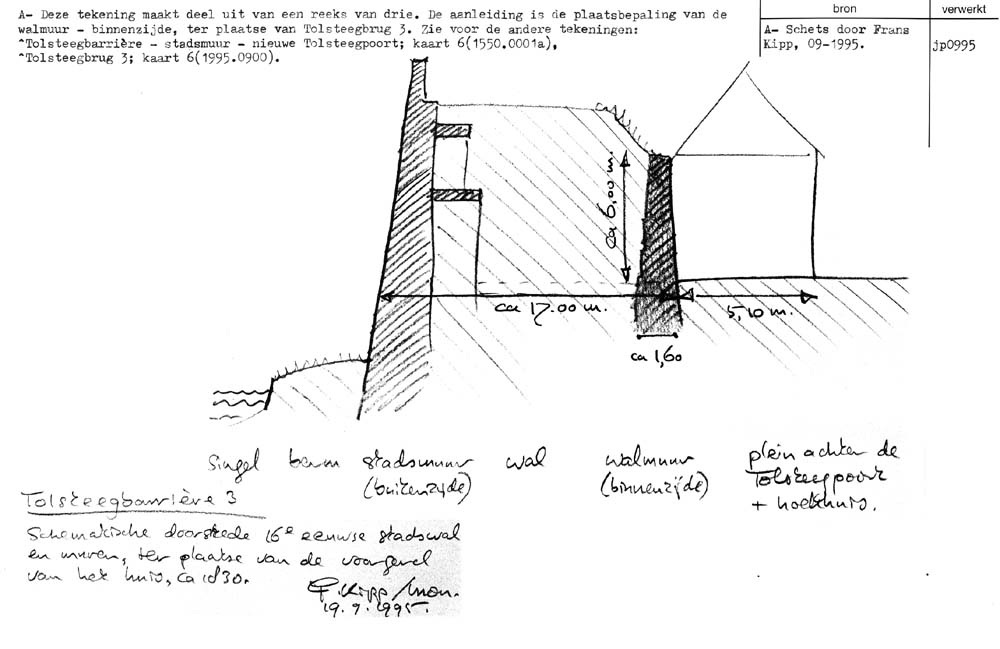 A- Deze tekening maakt deel uit van een reeks van drie. De aanleiding is de plaatsbepaling van de
walmuur - binnenzijde, ter plaatse van Tolsteegbrug 3. Zie voor de andere tekeningen:
^Tolsteegbarrière - stadsmuur - nieuwe Tolsteegpoort; kaart 6(1550.0001a),
^Tolsteegbrug 3; kaart 6(1995.0900).
bron
verwerkt
A- Schets door Frans
Kipp, 09-1995.
jp0995
ca 6,00 m.
ca 17.00 m.
5,10 m.
ca 1,60
singel berm stadsmuur wal walmuur
(buitenzijde) (binnenzijde)
plein achter de
Tolsteegpoort
+ hoekhuis.
Tolsteegbarrière 3
Schematische doorsnede 16e eeuwse stadswal
en muren, ter plaatse van de voorgevel
van het huis, ca
F. Kipp/mon.
19.9.1995.